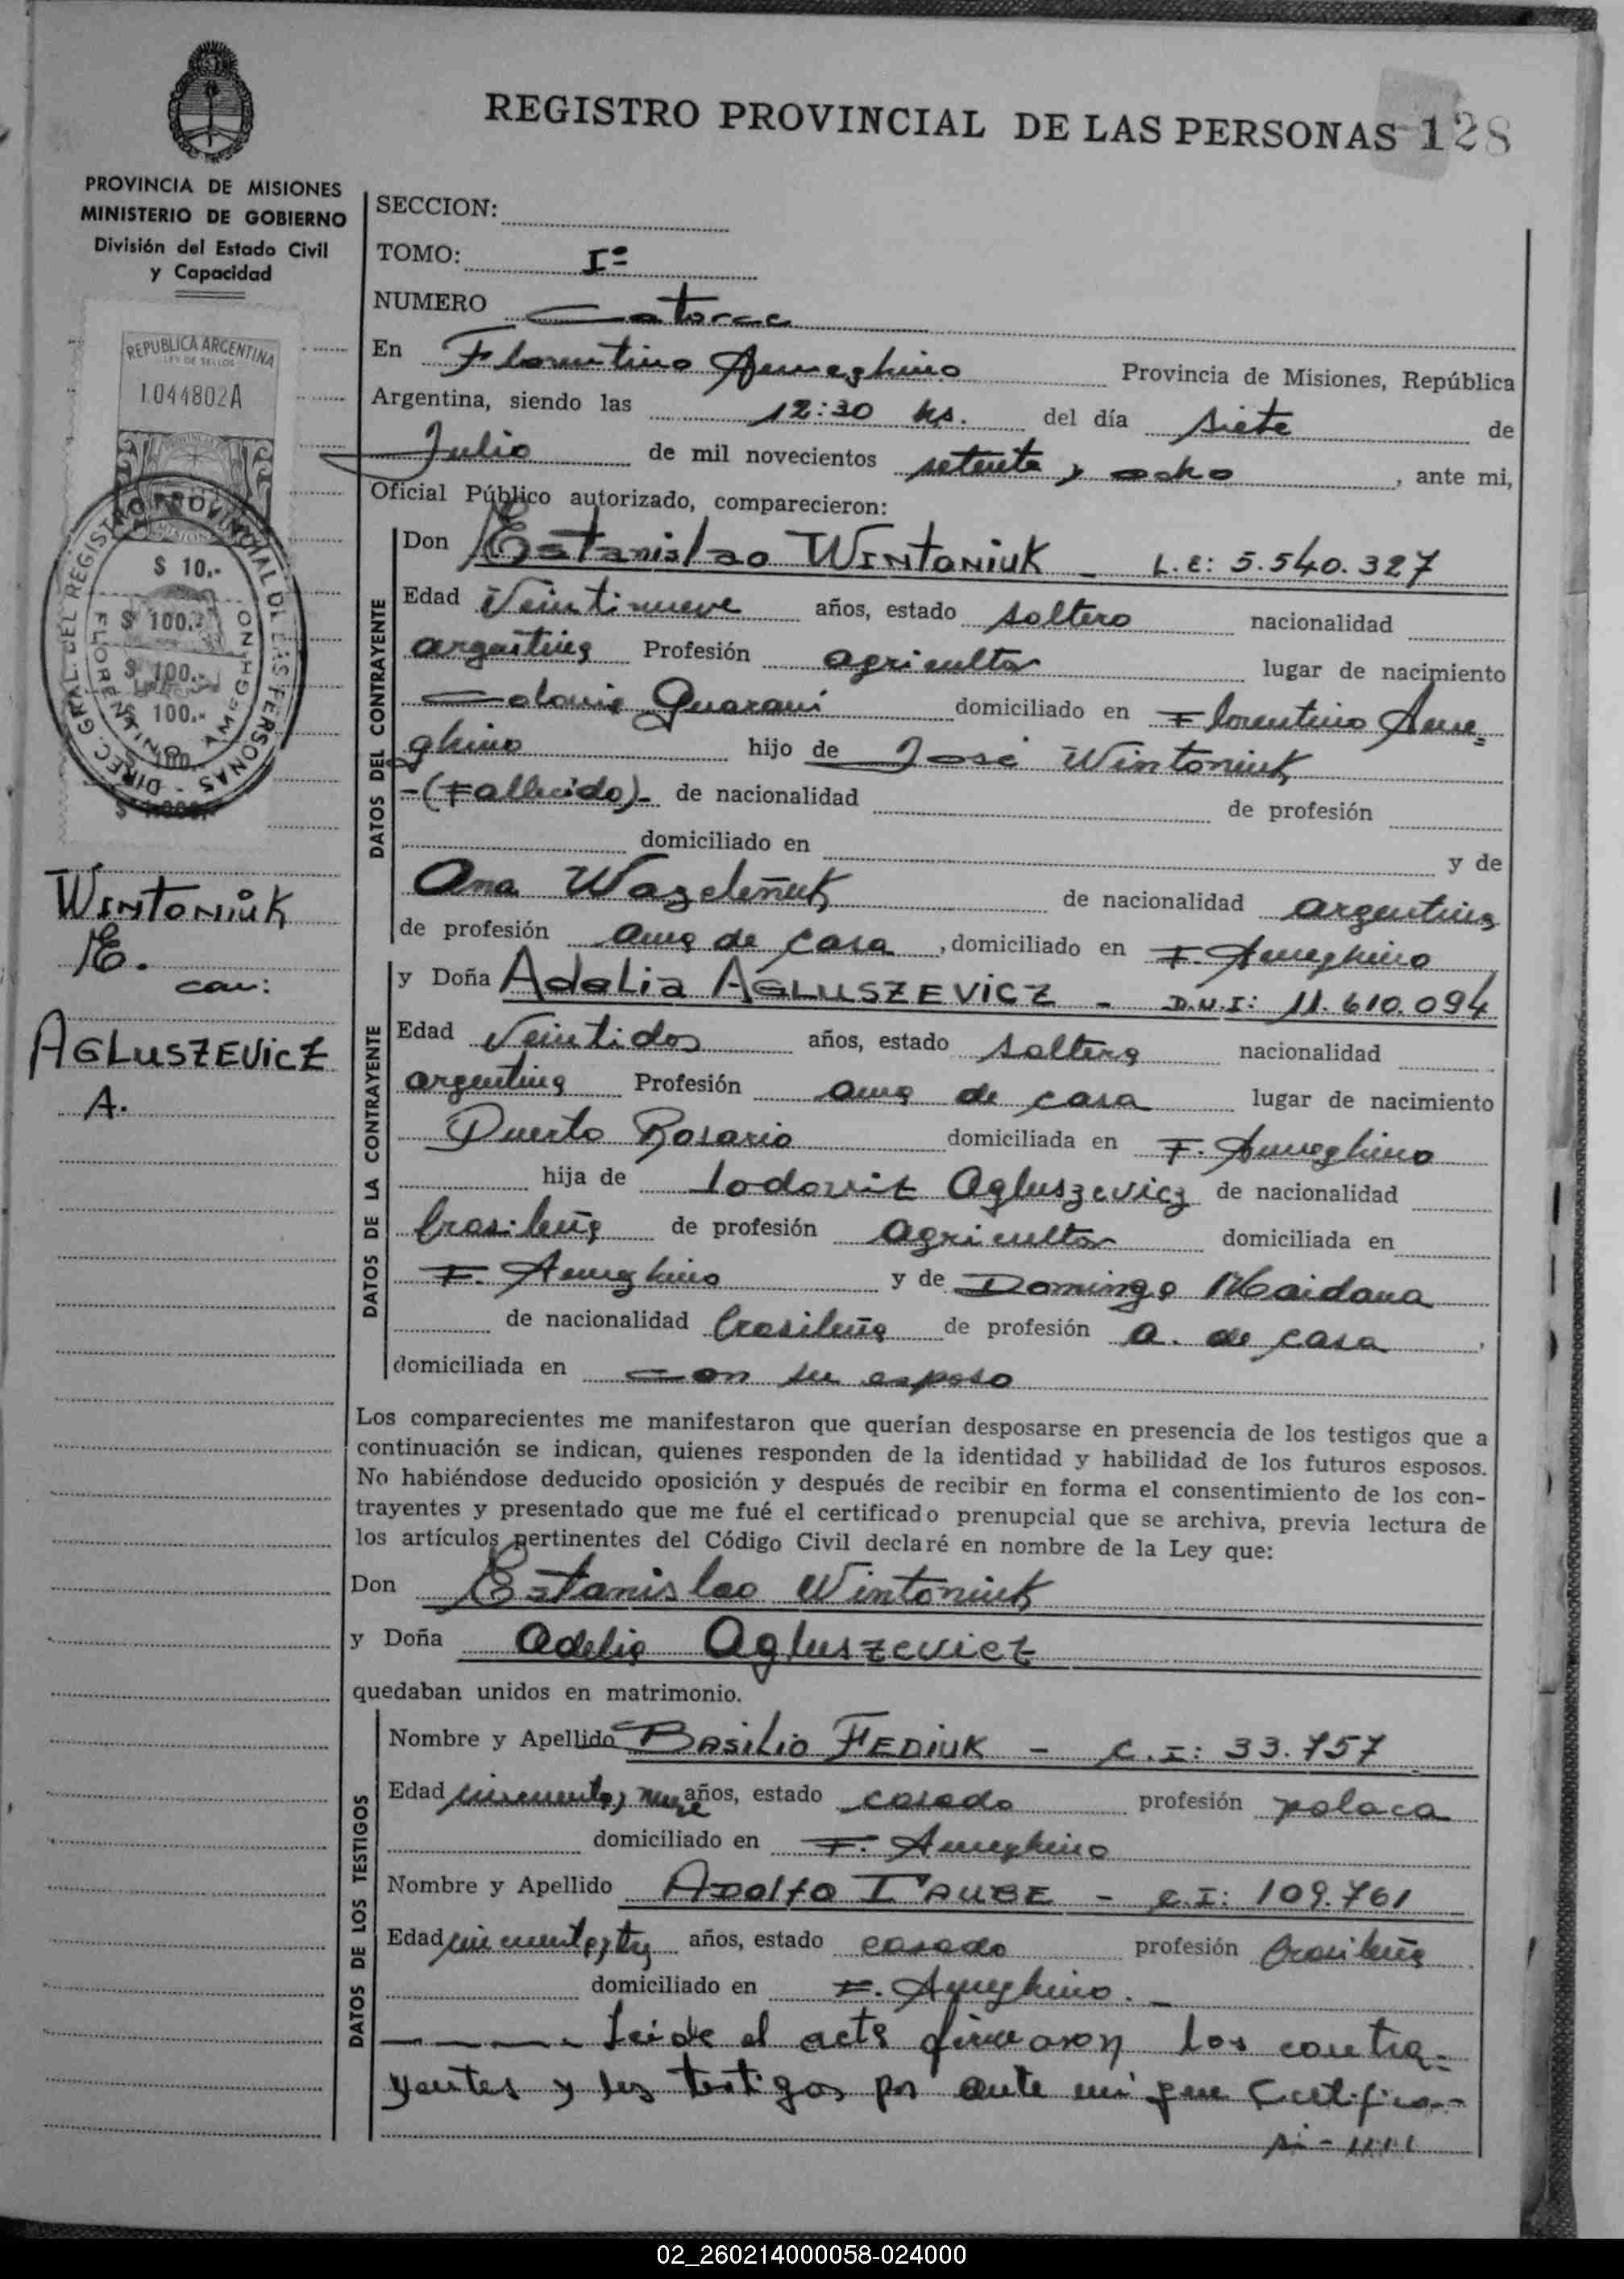 REGISTRO PROVINCIAL DE LAS PERSONAS 128
PROVINCIA DE MISIONES
MINISTERIO DE GOBIERNO
División del Estado Civil
y Capacidad
REPUBLICA ARGENTINA
LEY DE SELLOS
1044802A
$ 10.-
$ 100.-
$ 100.-
$ 100.-
DIREC. GRAL. DEL REGISTRO PROVINCIAL DE LAS PERSONAS
FLORENTINO AMEGHINO
WINTONIUK
E.
con:
AGLUSZEVICZ
A.
SECCION:
TOMO: Iº
NUMERO Catorce
En Florentino Ameghino Provincia de Misiones, República
Argentina, siendo las 12:30 hs. del día siete de
Julio de mil novecientos setenta y ocho, ante mi,
Oficial Público autorizado, comparecieron:
DATOS DEL CONTRAYENTE
Don Estanislao WINTONIUK - L.E: 5.540.327
Edad Veintinueve años, estado soltero nacionalidad
argentina Profesión agricultor lugar de nacimiento
Colonia Guaraní domiciliado en Florentino Ame=
ghino hijo de José Wintoniuk
-(Fallecido)- de nacionalidad de profesión
domiciliado en y de
Ana Wazeleñuk de nacionalidad argentina
de profesión ama de casa, domiciliado en F. Ameghino
DATOS DE LA CONTRAYENTE
y Doña Adelia AGLUSZEVICZ - D.N.I: 11.610.094
Edad Veintidos años, estado soltera nacionalidad
argentina Profesión ama de casa lugar de nacimiento
Puerto Rosario domiciliada en F. Ameghino
hija de Lodovit Agluszevicz de nacionalidad
brasileña de profesión agricultor domiciliada en
F. Ameghino y de Dominga Maidana
de nacionalidad brasileña de profesión a. de casa,
domiciliada en con su esposo
Los comparecientes me manifestaron que querían desposarse en presencia de los testigos que a
continuación se indican, quienes responden de la identidad y habilidad de los futuros esposos.
No habiéndose deducido oposición y después de recibir en forma el consentimiento de los con-
trayentes y presentado que me fué el certificado prenupcial que se archiva, previa lectura de
los artículos pertinentes del Código Civil declaré en nombre de la Ley que:
Don Estanislao Wintoniuk
y Doña Adelia Agluszevicz
quedaban unidos en matrimonio.
DATOS DE LOS TESTIGOS
Nombre y Apellido BASILIO FEDIUK - C.I: 33.757
Edad cincuenta y nueve años, estado casado profesión polaca
domiciliado en F. Ameghino
Nombre y Apellido ADOLFO TAUBE - C.I: 109.761
Edad cincuenta y tres años, estado casado profesión brasileña
domiciliado en F. Ameghino.-
Leida el acta firmaron los contra-
yentes y los testigos por ante mi que Certifico--
02_260214000058-024000